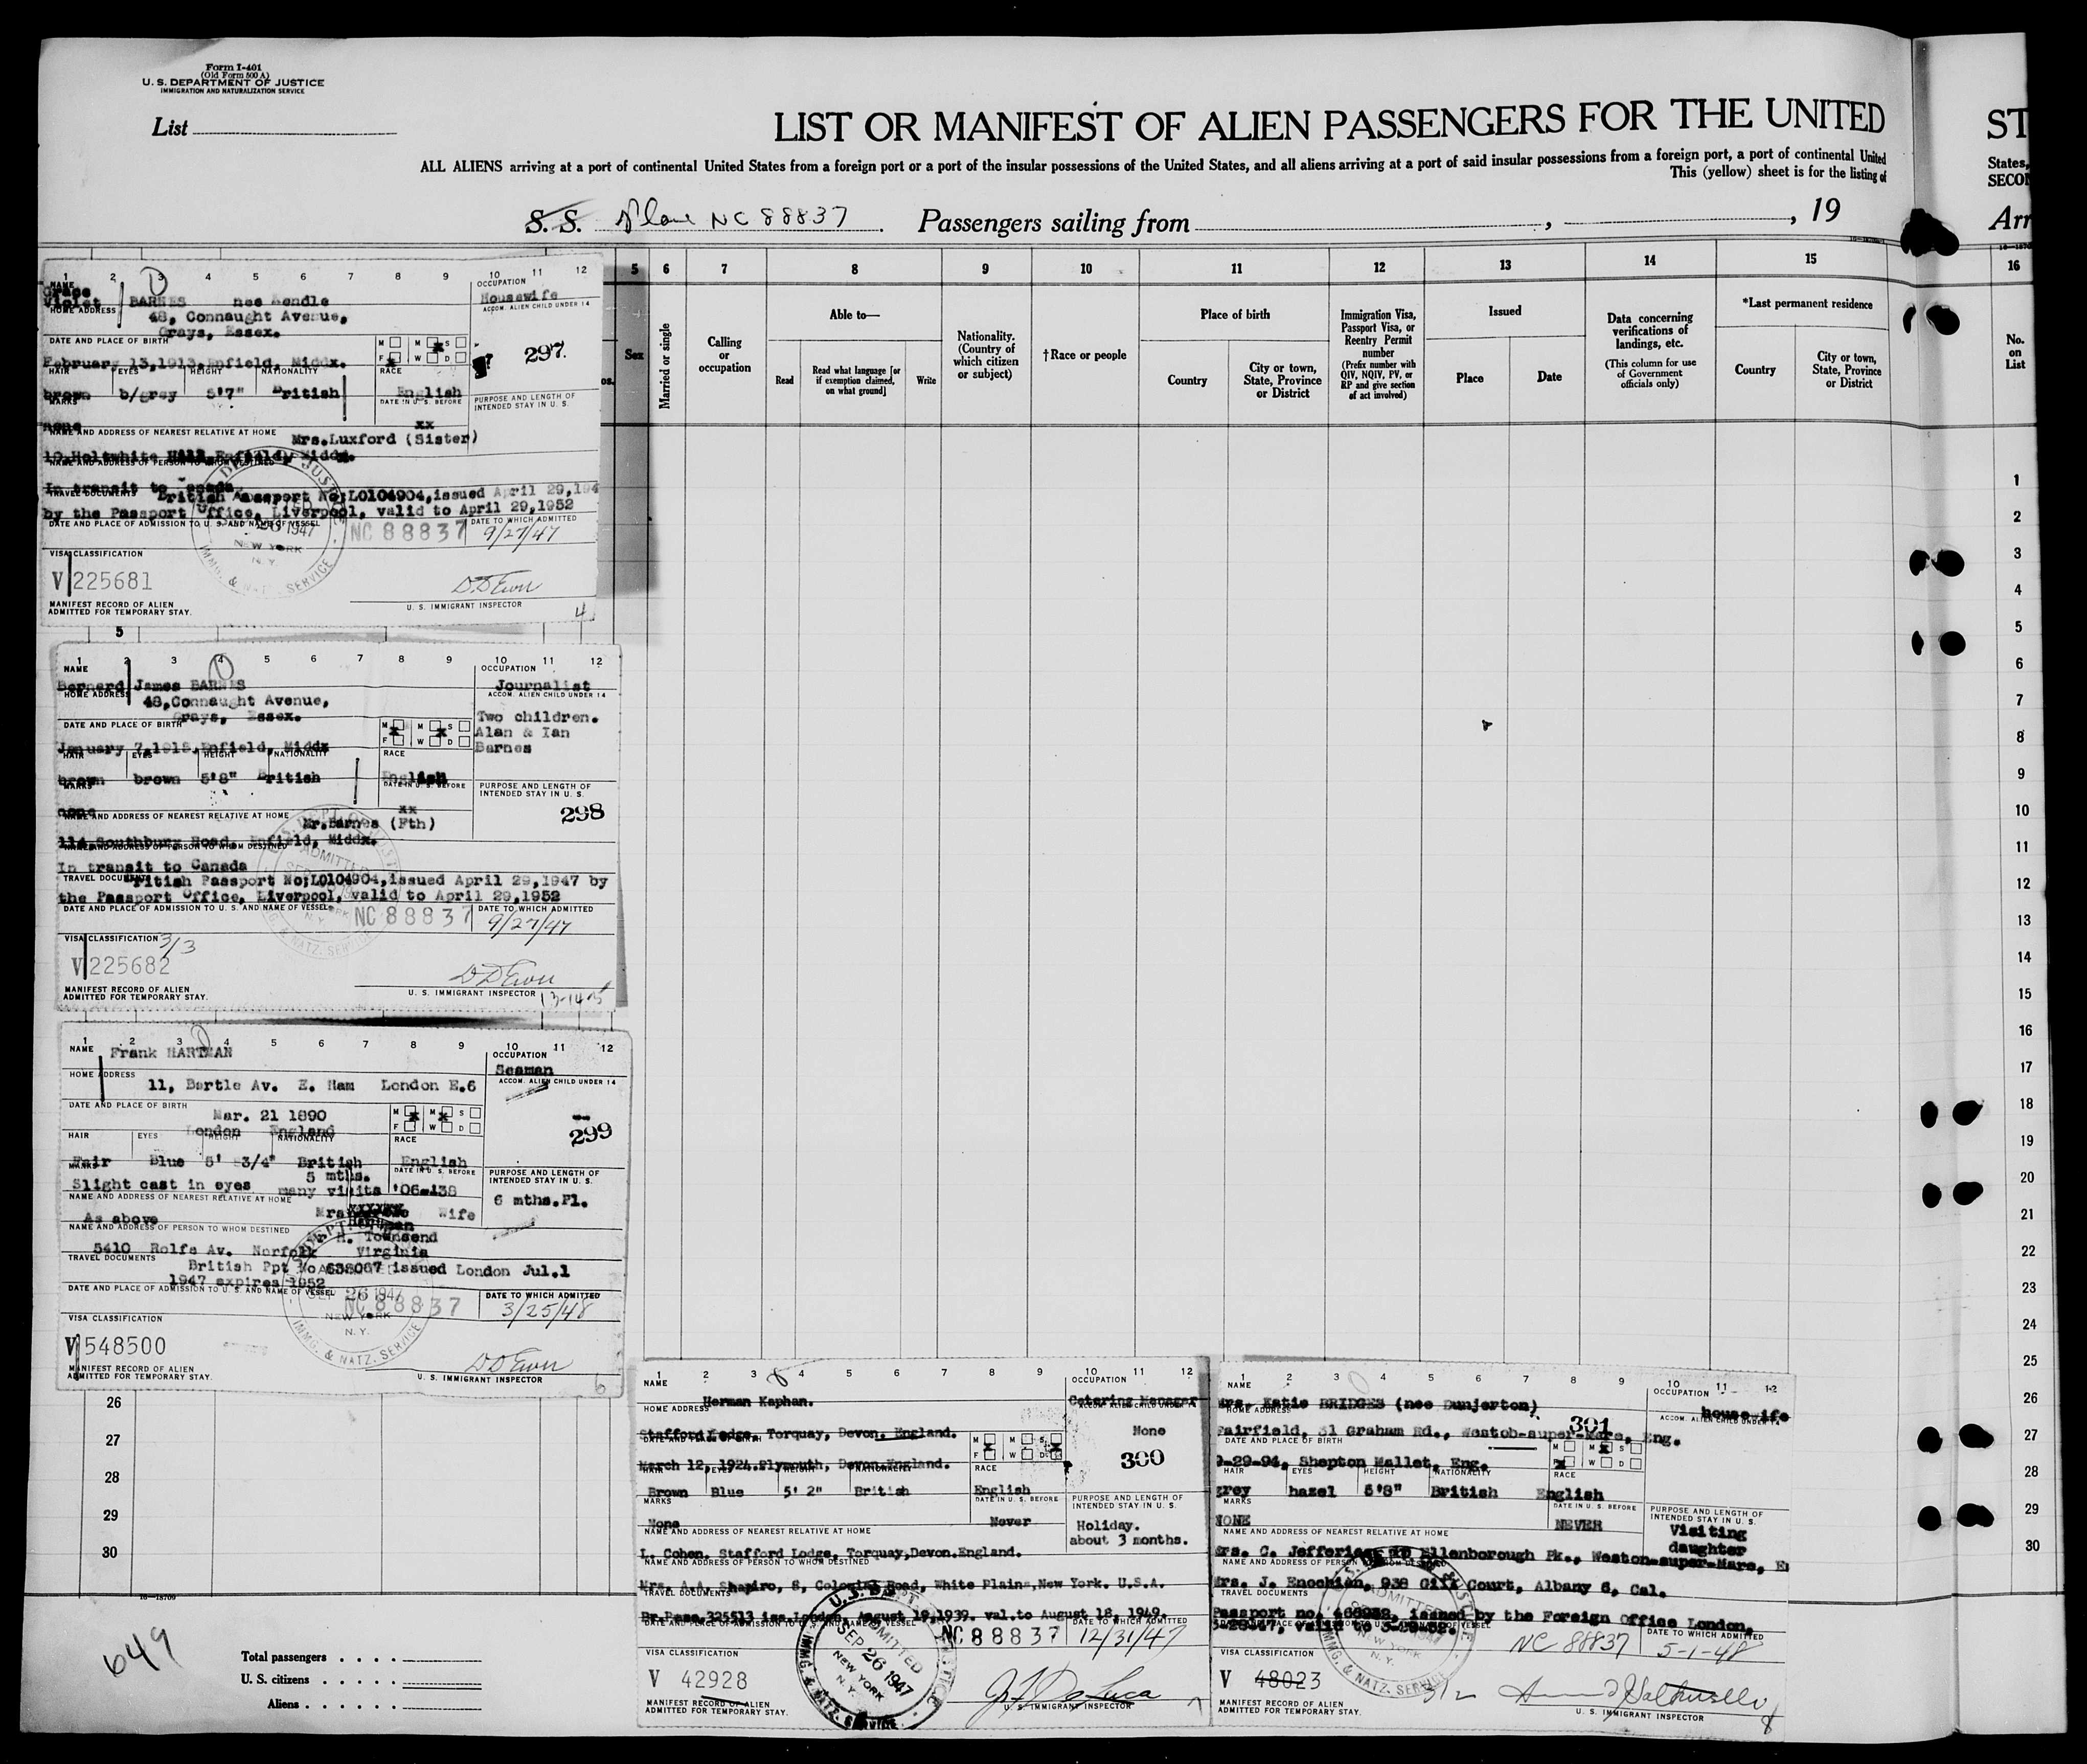 Form I-401
(Old Form 500 A)
U. S. DEPARTMENT OF JUSTICE
IMMIGRATION AND NATURALIZATION SERVICE
List
LIST OR MANIFEST OF ALIEN PASSENGERS FOR THE UNITED
ST
ALL ALIENS arriving at a port of continental United States from a foreign port or a port of the insular possessions of the United States, and all aliens arriving at a port of said insular possessions from a foreign port, a port of continental United
States,
This (yellow) sheet is for the listing of
SECON
S. S. Plane NC 88837 Passengers sailing from , , 19
Arr
5 6 7 8 9 10 11 12 13 14 15 16
Sex
Married or single
Calling or occupation
Able to—
Read
Read what language [or if exemption claimed, on what ground]
Write
Nationality. (Country of which citizen or subject)
†Race or people
Place of birth
Country
City or town, State, Province or District
Immigration Visa, Passport Visa, or Reentry Permit number
(Prefix number with QIV, NQIV, PV, or RP and give section of act involved)
Issued
Place
Date
Data concerning verifications of landings, etc.
(This column for use of Government officials only)
*Last permanent residence
Country
City or town, State, Province or District
No. on List
1 2 3 4 5 6 7 8 9 10 11 12
NAME
Grace
Violet BARNES nee Mendle
OCCUPATION
Housewife
HOME ADDRESS
48, Connaught Avenue,
Grays, Essex.
ACCOM. ALIEN CHILD UNDER 14
DATE AND PLACE OF BIRTH
February 13,1913,Enfield, Middx.
M M S
F W D
297.
HAIR EYES HEIGHT NATIONALITY RACE
brown b/grey 5'7" British English
MARKS
none
DATE IN U. S. BEFORE
xx
PURPOSE AND LENGTH OF INTENDED STAY IN U. S.
NAME AND ADDRESS OF NEAREST RELATIVE AT HOME
Mrs.Luxford (Sister)
19,Holtwhite Hill,Enfield, Middx.
NAME AND ADDRESS OF PERSON TO WHOM DESTINED
In transit to Canada
TRAVEL DOCUMENTS
British Passport No;L0104904,issued April 29,194
by the Passport Office, Liverpool, valid to April 29,1952
DATE AND PLACE OF ADMISSION TO U. S. AND NAME OF VESSEL
NC 88837
DATE TO WHICH ADMITTED
9/27/47
1947
NEW YORK
N. Y.
IMMG. & NATZ. SERVICE
VISA CLASSIFICATION
V 225681
MANIFEST RECORD OF ALIEN
ADMITTED FOR TEMPORARY STAY.
U. S. IMMIGRANT INSPECTOR
4
5
1 2 3 4 5 6 7 8 9 10 11 12
NAME
Bernard James BARNES
OCCUPATION
Journalist
HOME ADDRESS
48,Connaught Avenue,
Grays, Essex.
ACCOM. ALIEN CHILD UNDER 14
Two children.
Alan & Ian
Barnes
DATE AND PLACE OF BIRTH
January 7,1918,Enfield, Middx
M M S
F W D
HAIR EYES HEIGHT NATIONALITY RACE
brown brown 5'8" British English
MARKS
none
DATE IN U. S. BEFORE
xx
PURPOSE AND LENGTH OF INTENDED STAY IN U. S.
298
NAME AND ADDRESS OF NEAREST RELATIVE AT HOME
Mr.Barnes (Fth)
114,Southbury Road, Enfield, Middx.
NAME AND ADDRESS OF PERSON TO WHOM DESTINED
In transit to Canada
TRAVEL DOCUMENTS
British Passport No;L0104904,issued April 29,1947 by
the Passport Office, Liverpool, valid to April 29,1952
DATE AND PLACE OF ADMISSION TO U. S. AND NAME OF VESSEL
NC 88837
DATE TO WHICH ADMITTED
9/27/47
VISA CLASSIFICATION 3/3
V 225682
MANIFEST RECORD OF ALIEN
ADMITTED FOR TEMPORARY STAY.
U. S. IMMIGRANT INSPECTOR
1 2 3 4 5 6 7 8 9 10 11 12
NAME
Frank HARTMAN
OCCUPATION
Seaman
HOME ADDRESS
11, Bartle Av. E. Ham London E.6
ACCOM. ALIEN CHILD UNDER 14
DATE AND PLACE OF BIRTH
Mar. 21 1890
London England
M M S
F W D
299
HAIR EYES HEIGHT NATIONALITY RACE
Fair Blue 5' 3/4" British English
MARKS
Slight cast in eyes
5 mths.
many visits '06-'38
DATE IN U. S. BEFORE
PURPOSE AND LENGTH OF INTENDED STAY IN U. S.
6 mths.Pl.
NAME AND ADDRESS OF NEAREST RELATIVE AT HOME
As above Mrs Hartman Wife
NAME AND ADDRESS OF PERSON TO WHOM DESTINED
Mr H. Townsend
5410 Rolfe Av. Norfolk Virginia
TRAVEL DOCUMENTS
British Ppt No 638067 issued London Jul.1
1947 expires 1952
DATE AND PLACE OF ADMISSION TO U. S. AND NAME OF VESSEL
SEP 26 1947
NC 88837
NEW YORK
N. Y.
IMMG. & NATZ. SERVICE
DATE TO WHICH ADMITTED
3/25/48
VISA CLASSIFICATION
V 548500
MANIFEST RECORD OF ALIEN
ADMITTED FOR TEMPORARY STAY.
U. S. IMMIGRANT INSPECTOR
6
26
27
28
29
30
16—18709
649
Total passengers
U. S. citizens
Aliens
1 2 3 4 5 6 7 8 9 10 11 12
NAME
Herman Kaphan.
OCCUPATION
Catering Manager
HOME ADDRESS
Stafford Lodge, Torquay, Devon. England.
None
DATE AND PLACE OF BIRTH
March 12, 1924.Plymouth, Devon.England.
M M S
F W D
300
HAIR EYES HEIGHT NATIONALITY RACE
Brown Blue 5' 2" British English
MARKS
None
DATE IN U. S. BEFORE
Never
PURPOSE AND LENGTH OF INTENDED STAY IN U. S.
Holiday.
about 3 months.
NAME AND ADDRESS OF NEAREST RELATIVE AT HOME
L. Cohen, Stafford Lodge, Torquay,Devon.England.
NAME AND ADDRESS OF PERSON TO WHOM DESTINED
Mrs. A.A. Shapiro, 8, Colonial Road, White Plains,New York. U.S.A.
TRAVEL DOCUMENTS
Br.Pass.325513 iss.London, August 19,1939. val.to August 18, 1949.
DATE AND PLACE OF ADMISSION TO U. S. AND NAME OF VESSEL
NC 88837
DATE TO WHICH ADMITTED
12/31/47
ADMITTED
SEP 26 1947
NEW YORK
N. Y.
IMMG. & NATZ. SERVICE
VISA CLASSIFICATION
V 42928
MANIFEST RECORD OF ALIEN
ADMITTED FOR TEMPORARY STAY.
U. S. IMMIGRANT INSPECTOR
7
1 2 3 4 5 6 7 8 9 10 11 12
NAME
Mrs. Katie BRIDGES (nee Dunjerton)
OCCUPATION
housewife
HOME ADDRESS
Fairfield, 31 Graham Rd., Westob-super-Mare, Eng.
301
DATE AND PLACE OF BIRTH
9-29-94, Shepton Mallet, Eng.
M M S
F W D
HAIR EYES HEIGHT NATIONALITY RACE
grey hazel 5'8" British English
MARKS
NONE
DATE IN U. S. BEFORE
NEVER
PURPOSE AND LENGTH OF INTENDED STAY IN U. S.
Visiting
daughter
NAME AND ADDRESS OF NEAREST RELATIVE AT HOME
Mrs. C. Jefferies Ellenborough Pk., Weston-super-Mare, E
NAME AND ADDRESS OF PERSON TO WHOM DESTINED
Mrs. J. Enochian, 938 Gift Court, Albany 6, Cal.
TRAVEL DOCUMENTS
Passport no. issued by the Foreign Office London,
valid to
NC 88837
DATE TO WHICH ADMITTED
5-1-48
VISA CLASSIFICATION
V 48023
3/2
MANIFEST RECORD OF ALIEN
ADMITTED FOR TEMPORARY STAY.
U. S. IMMIGRANT INSPECTOR
8
1
2
3
4
5
6
7
8
9
10
11
12
13
14
15
16
17
18
19
20
21
22
23
24
25
26
27
28
29
30